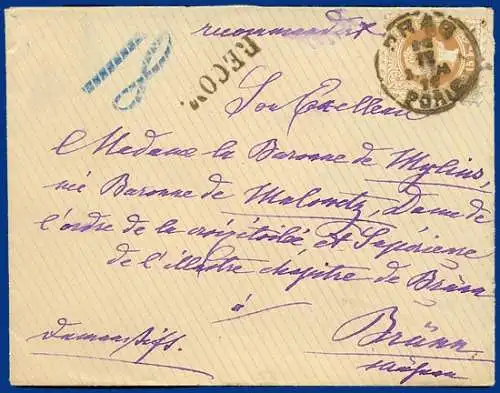 recommandée
RECOM.
PRAG
15
Son Excellence
Madame la Baronne de Mylius,
née Baronne de Malowetz, Dame de
l'ordre de la croix étoilée et Supérieure
de l'illustre chapitre de Brünn
à
Brünn
Damenstift.